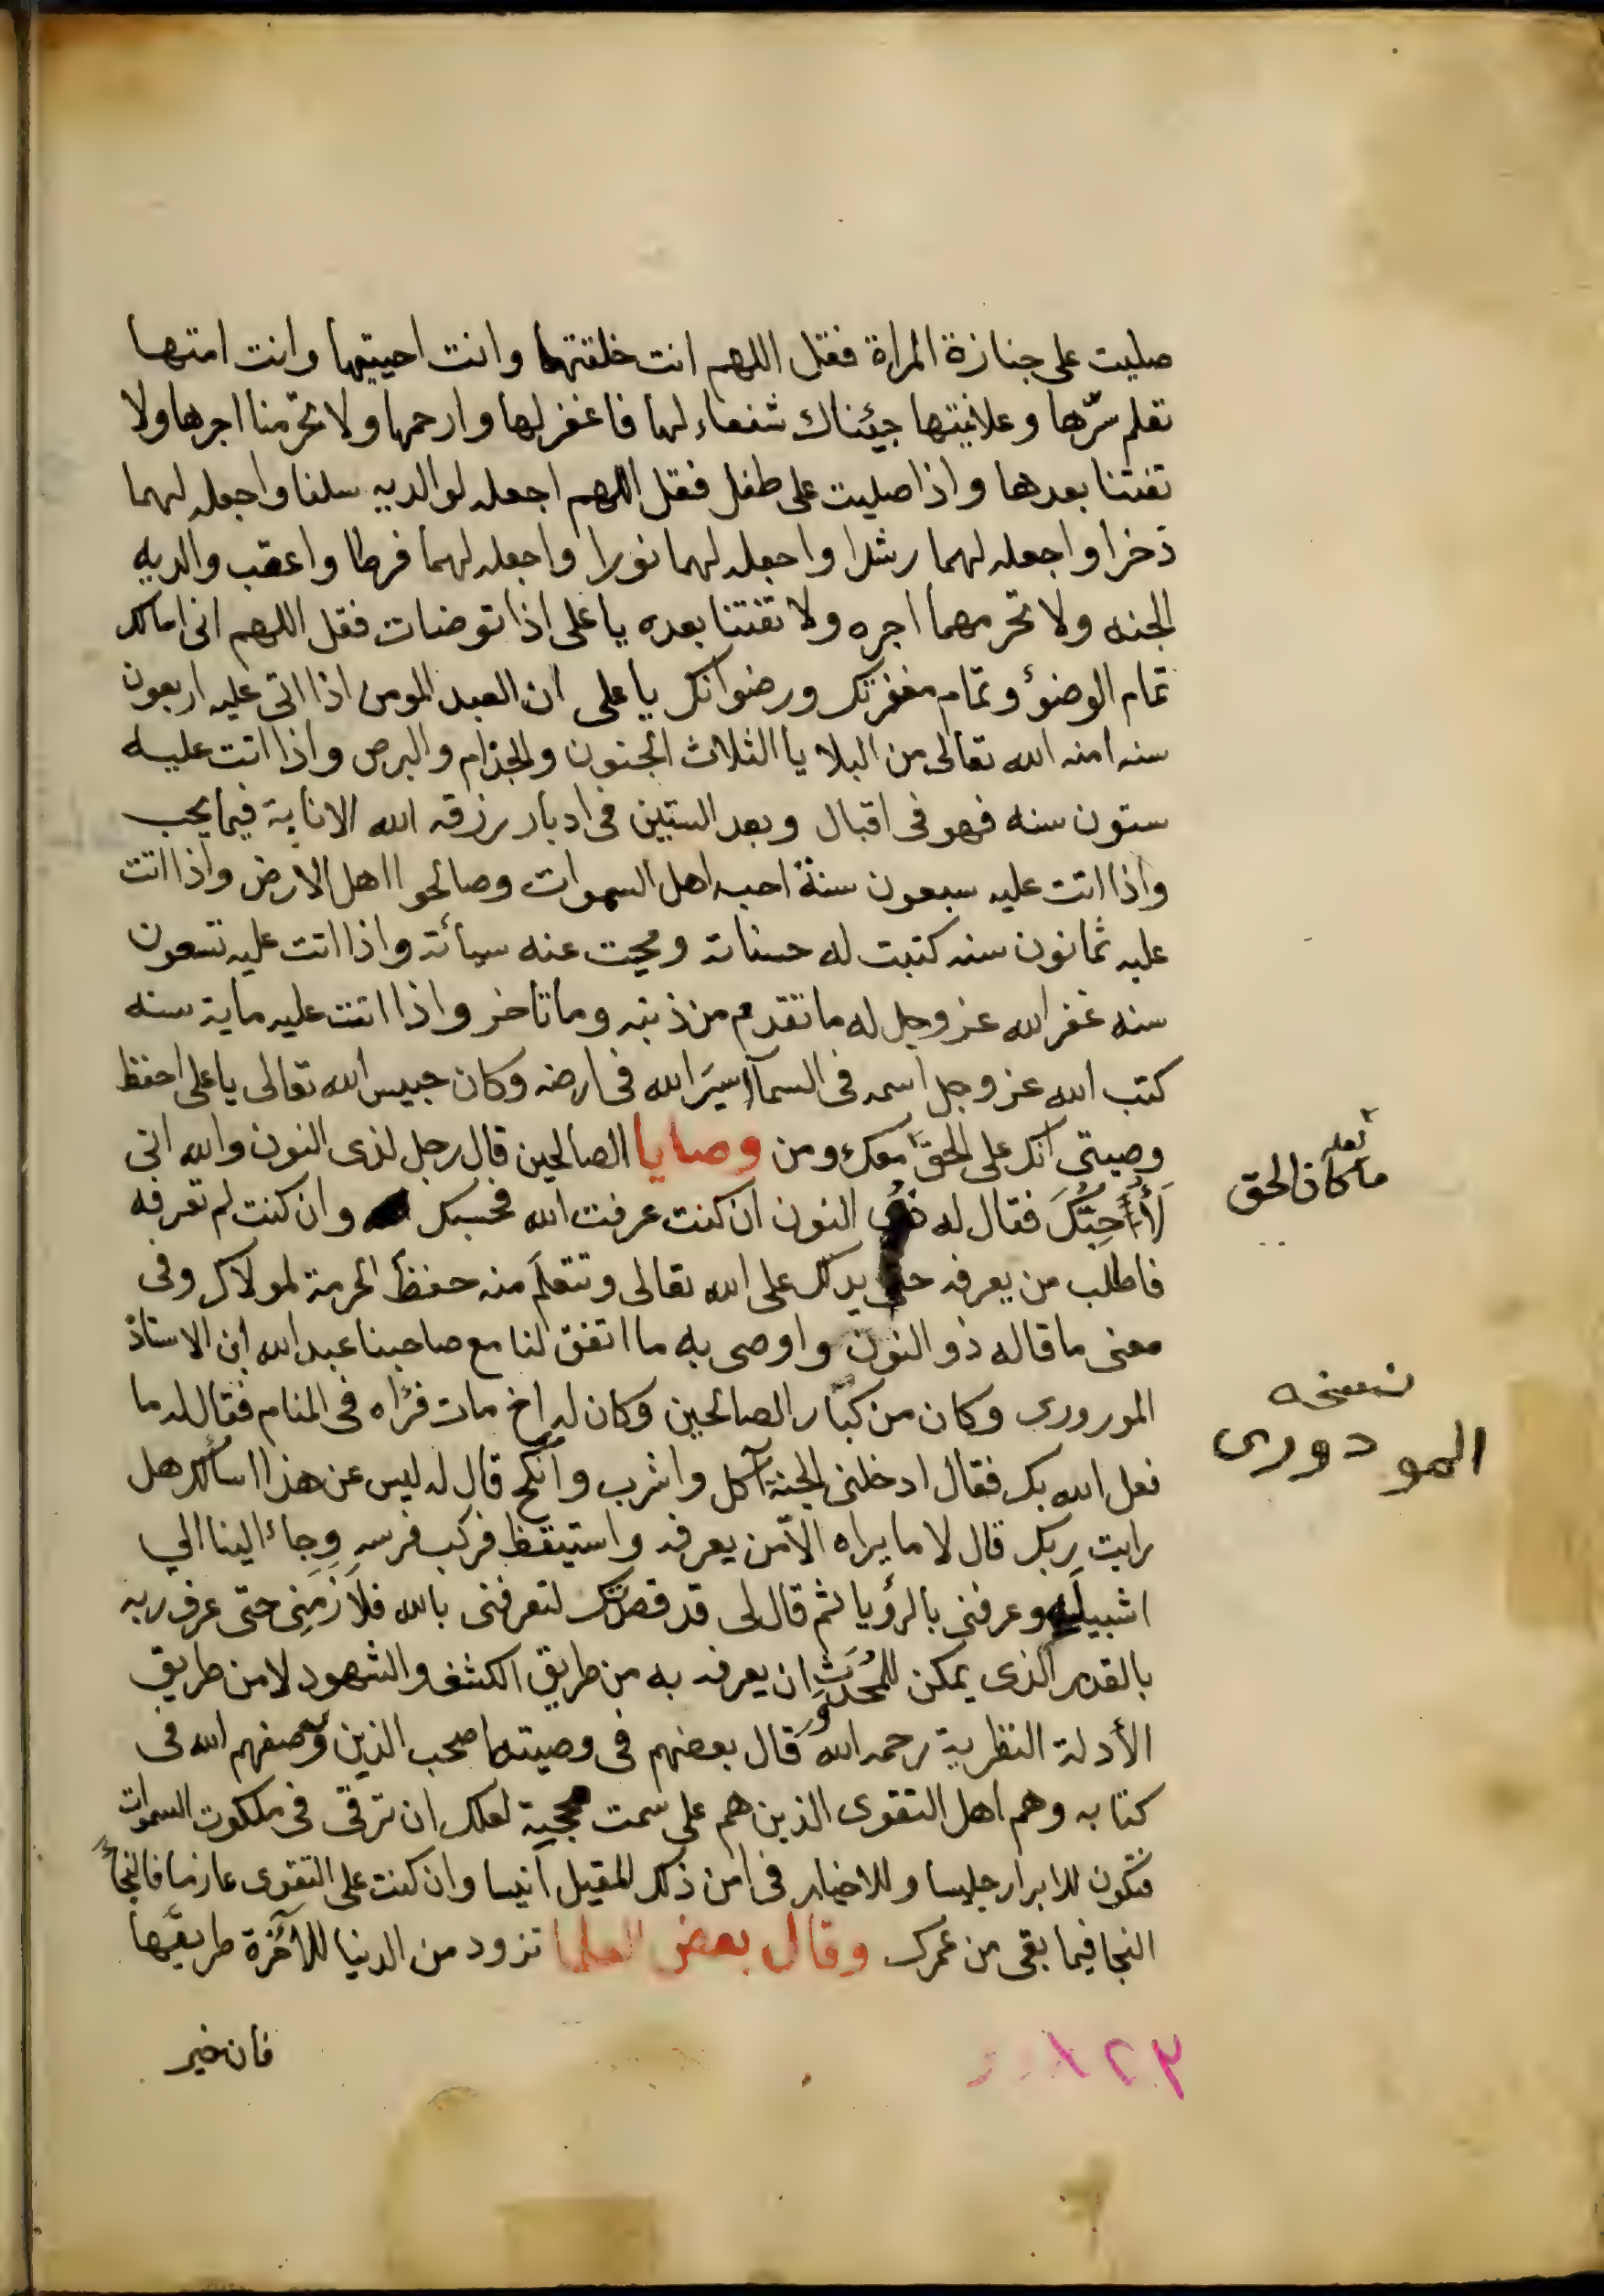 صليت على جنازة المراة فقل اللهم انت خلقتها وانت احييتها وانت امتها
تعلم سرّها وعلانيتها جئناك شفعاء لها فاغفر لها وارحمها ولا تحرّمنا اجرها ولا
تفتنا بعدها واذا صليت على طفل فقل اللهم اجعله لوالديه سلفا واجعله لهما
ذخرا واجعله لهما رشدا واجعله لهما نورا واجعله لهما فرطا واعقب والديه
الجنه ولا تحرمهما اجره ولا تفتنا بعده يا على اذا توضات فقل اللهم انى اسالك
تمام الوضؤ وتمام مغفرتك ورضوانك يا على ان العبد المومن اذا اتى عليه اربعون
سنه امنه الله تعالى من البلايا الثلاث الجنون والجذام والبرص واذا اتت عليه
ستون سنه فهو فى اقبال وبعد الستين فى ادبار رزقه الله الانابة فيما يحب
واذا اتت عليه سبعون سنة احبه اهل السموات وصالحوا اهل الارض واذا اتت
عليه ثمانون سنه كتبت له حسناته ومحيت عنه سيأته واذا اتت عليه تسعون
سنه غفر الله عز وجل له ما تقدم من ذنبه وما تاخر واذا اتت عليه ماية سنه
كتب الله عز وجل اسمه فى السمآ اسيَر الله فى ارضه وكان حبيس الله تعالى يا على احفظ
وصيتى انك على الحق معك ومن وصايا الصالحين قال رجل لذى النون والله انى
لأُحِبُّكَ فقال له ذو النون ان كنت عرفت الله فحسبك وان كنت لم تعرفه
فاطلب من يعرفه حتى يدلك على الله تعالى وتتعلّم منه حفظ الحرمة لمولاك وفى
معنى ما قاله ذو النون واوصى به ما اتفق لنا مع صاحبنا عبد الله ابن الاستاذ
المورورى وكان من كبار الصالحين وكان له اخ مات فرٔاه فى المنام فقال له ما
فعل الله بك فقال ادخلنى الجنة آكل واشرب وأنكح قال له ليس عن هذا اسألك هل
رايت ربك قال لا ما يراه الّا من يعرفه واستيقظ فركب فرسه وجاء الينا الي
اشبيليه وعرفنى بالرؤيا ثم قال لى قد قصدتك لتعرفنى بالله فلازَمَنِى حتى عرف ربه
بالقدر الذى يمكن للمُحْدَثِ ان يعرفه به من طريق الكشف والشهود لا من طريق
الأدلة النظرية رحمه الله وقال بعضهم فى وصيته اصحب الذين وصفهم الله فى
كتابه وهم اهل التقوى الذين هم على سمت محجية لعلك ان ترقى فى ملكوت السموات
فتكون للابرار جليسا وللاخيار فى امن ذلك المقيل انيسا وان كنت على التقوى عازما فالنجأ
النجا فيما بقى من عمرك وقال بعض العلما تزود من الدنيا للآخرة طريقها
فان خير
١٢٣
ما كان الحق
نسخه
المودورى